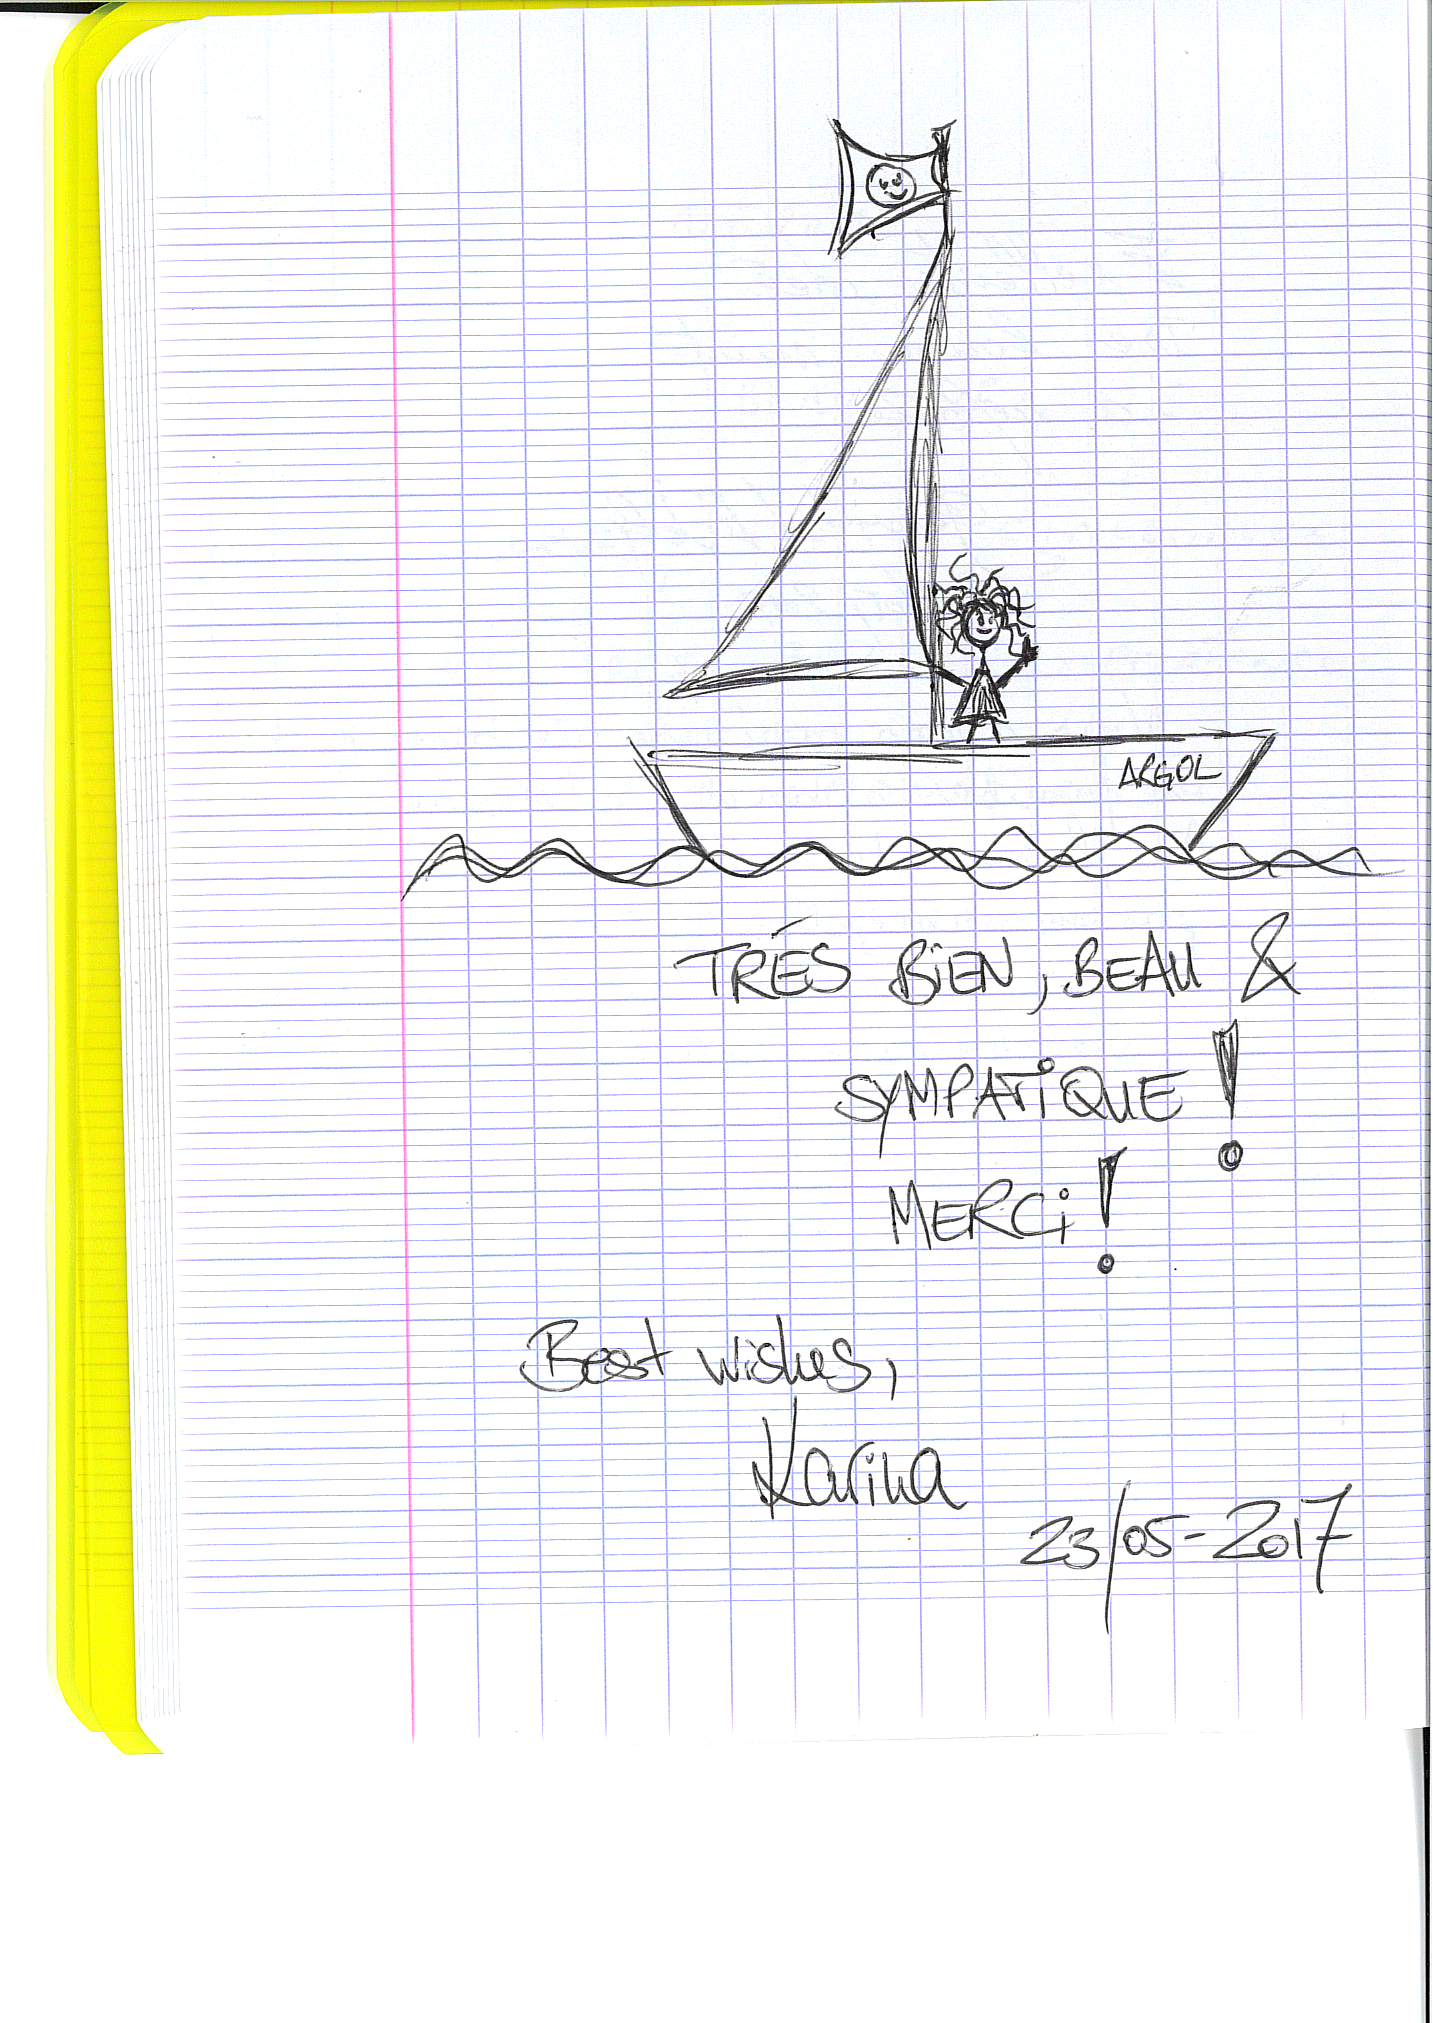 ARGOL
TRÉS BIEN, BEAU &
SYMPATIQUE !
MERCI !
Best wishes,
Karina
23/05-2017